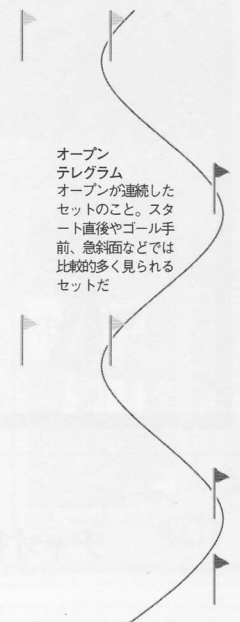 オープン
テレグラム
オープンが連続した
セットのこと。スタ
ート直後やゴール手
前、急斜面などでは
比較的多く見られる
セットだ